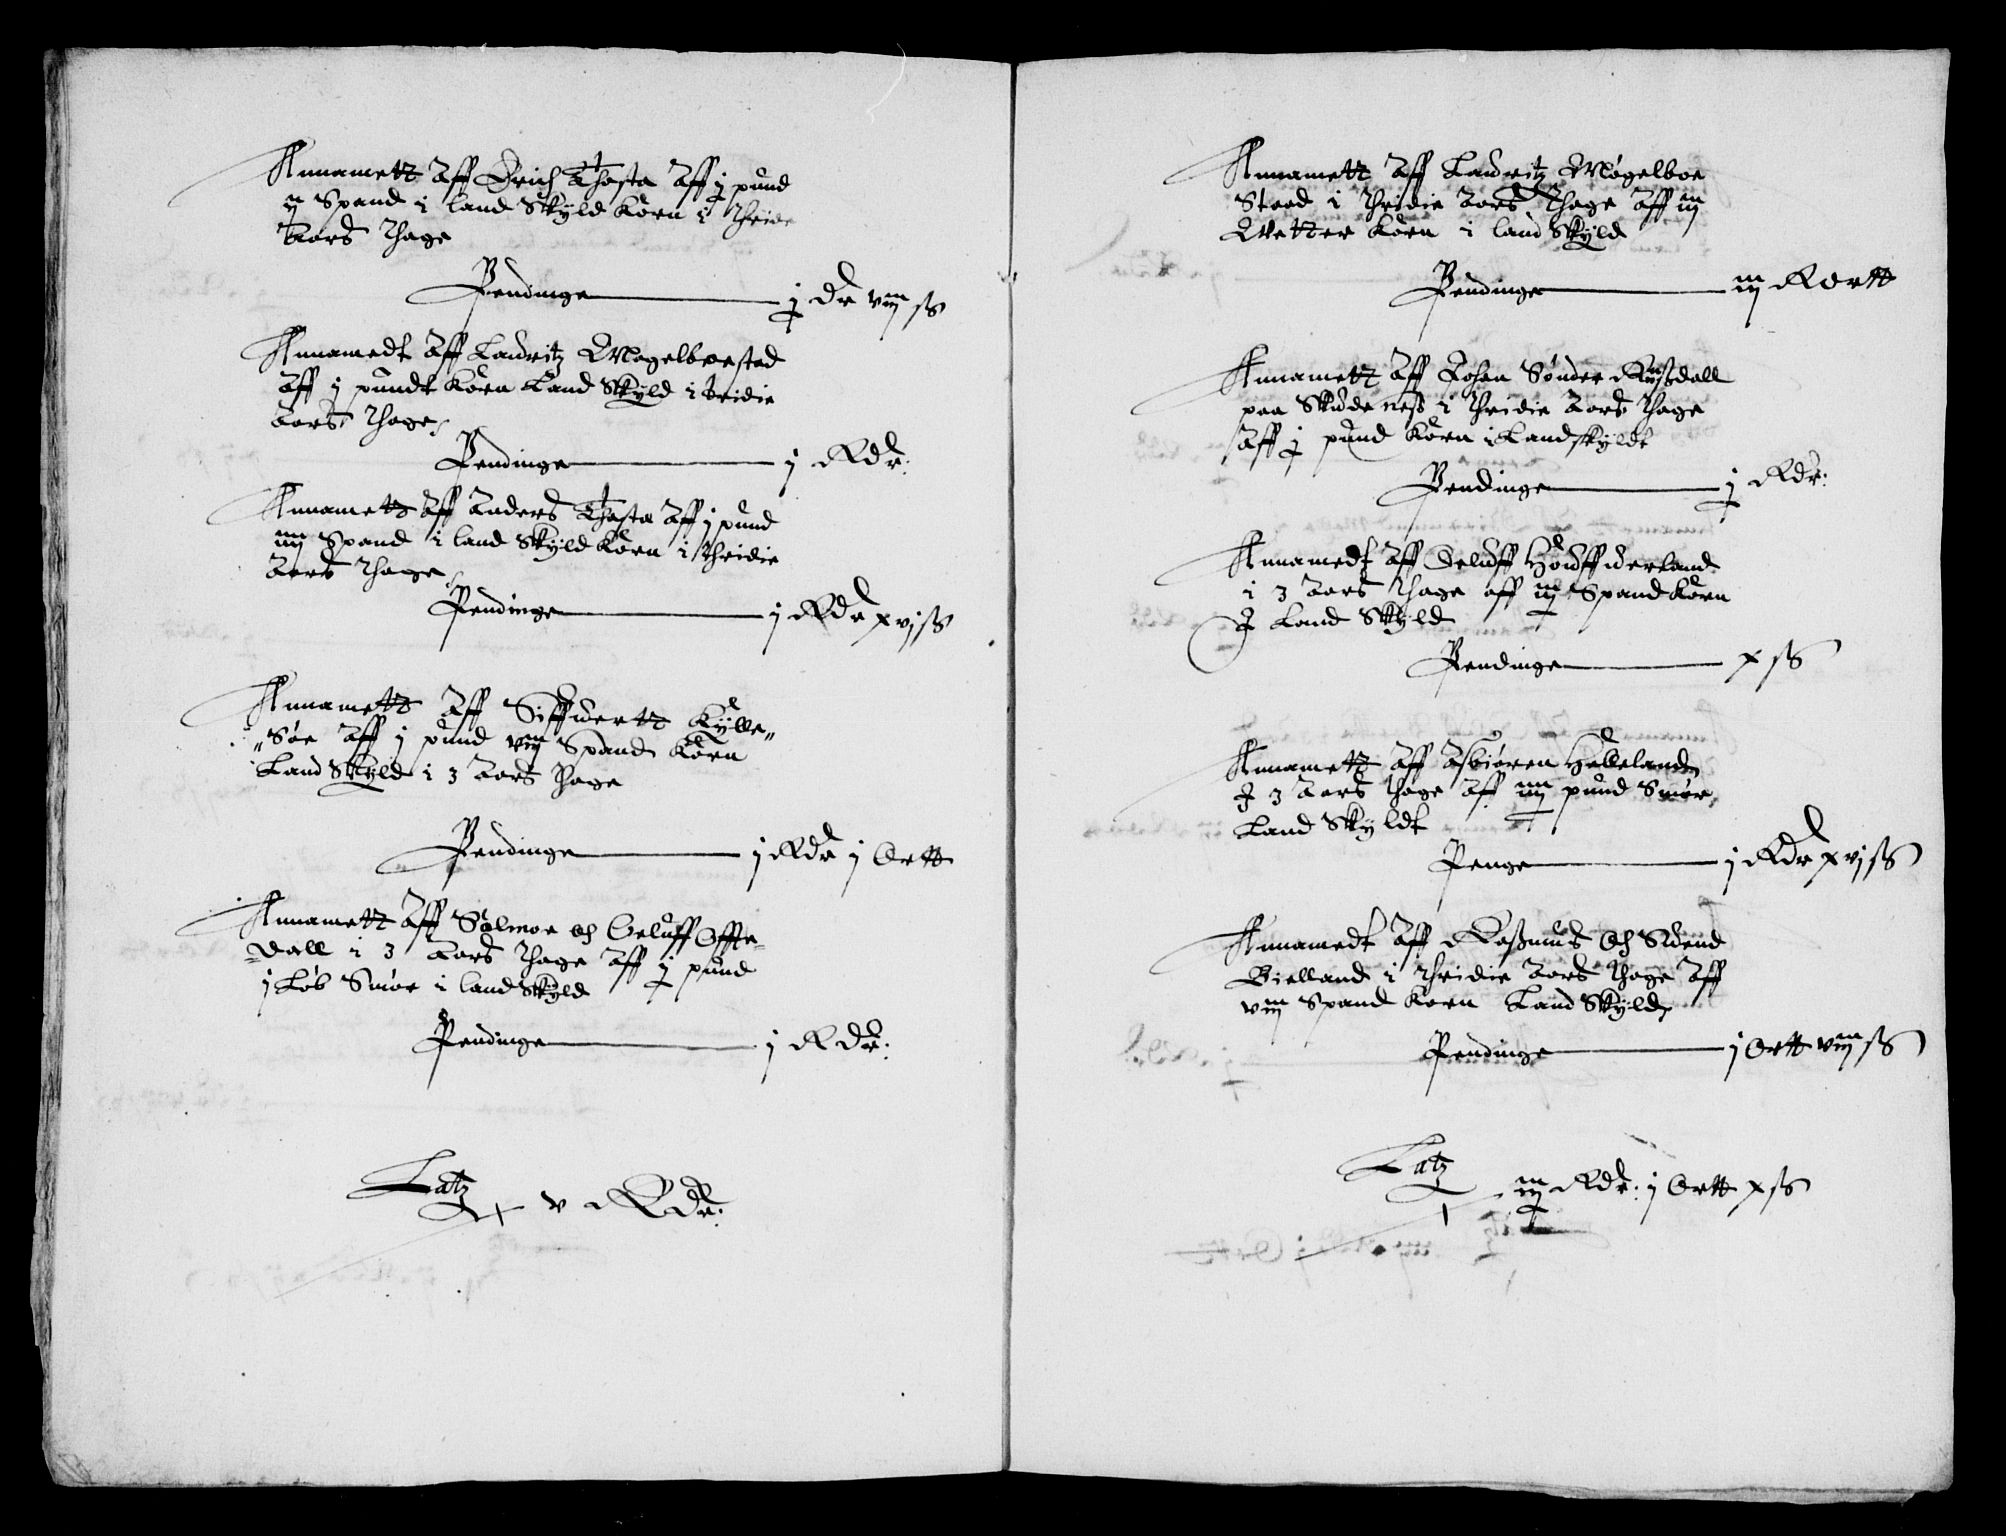 Annamett Aff Erich Thosta Aff j pund
ij Spand i land Skyld Korn i thridie
Aars thage
Pendinge j dr viij sß
Annamedt Aff Lauritz Mogelboestad
Aff j pundt Korn Land Skyld i tridie
Aars thage
Pendinge j Rdr:
Annamett Aff Anders Thosta Aff j pund
iiij Spand i land Skyld Korn i thridie
Aars thage
Pendinge j Rdr xvj sß
Annamett Aff Siffuertt Kylle„
„Søe Aff j pund viij Spand Korn
Land Skyld i 3 Aars thage
Pendinge j Rdr j Ortt
Annamett Aff Salmoe och Oeluff Offte-
-dall i 3 Aars thage Aff j pund
j Løb Smør i land Skyld
Pendinge j Rdr:
Latz v Rdr:
Annamett Aff Lauritz Møgelboe
Stoed i thridie Aars thage Aff iij
Wetter Korn i land Skyld
Pendinge iij Rortt
Annamett Aff Johan Sønder
paa Skudeneß i thridie Aars thage
Aff j pund Korn i Landskyldt
Pendinge j Rdr:
Annamedt Aff Oeluff
i 3 Aars thage aff iij Spand Korn
J Land Skyld
Pendinge x sß
Annamett Aff Asbiøren Helleland
J 3 Aars thage Aff iiij pund Smør
Land Skyldt
Penge j Rdr xvj sß
Annamedt Aff Raßmus Och Suend
Bielland i thridie Aars thage Aff
viij Spand Korn Land Skyld
Pendinge j Ortt viij sß
Latz iij Rdr: j Ortt x sß